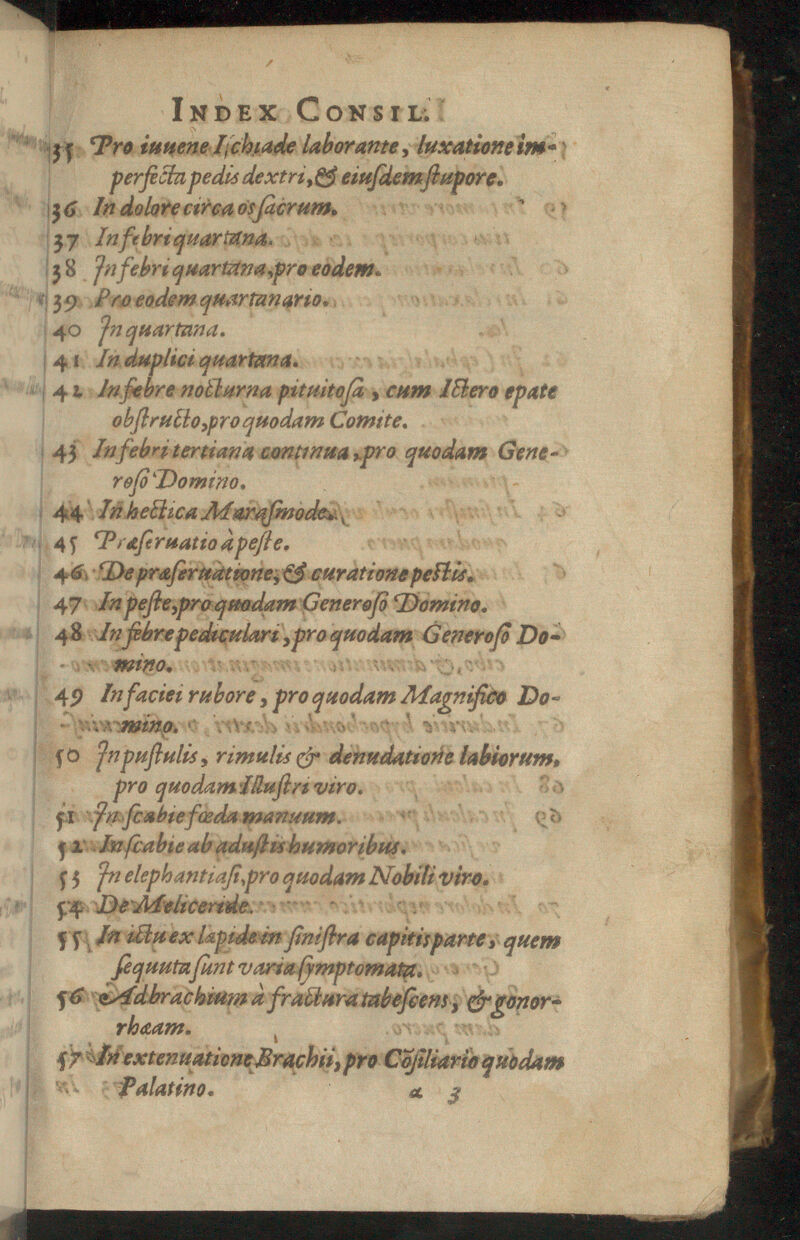 INDEX CONSIL.
35 Pro iuuene Iſchiade laborante, luxatione im-
perfecta pedis dextri, & eiuſdem ſtupore.
36 In dolore circa os ſacrum.
37 In febri quartana.
38 In febri quartana, pro eodem.
39 Pro eodem quartanario.
40 In quartana.
41 In duplici quartana.
42 In febre nocturna pituitoſa, cum Ictero epate
obſtructo, pro quodam Comite.
43 In febri tertiana continua, pro quodam Gene-
roſo Domino.
44 In hectica Maraſmode.
45 Præſeruatio à peſte.
46 De præſeruatione, & curatione peſtis.
47 In peſte, pro quodam Generoſo Domino.
48 In febre pediculari, pro quodam Generoſo Do-
mino.
49 In faciei rubore, pro quodam Magnifico Do-
mino.
50 In puſtulis, rimulis & denudatione labiorum,
pro quodam Illuſtri viro.
51 In ſcabie fœda manuum.
52 In ſcabie ab aduſtis humoribus.
53 In elephantiaſi, pro quodam Nobili viro.
54 De Meliceride.
55 In ictu ex lapide in ſiniſtra capitis parte, quem
ſequuta ſunt varia ſymptomata.
56 Ad brachium à fractura tabeſcens, & gonor-
rhæam.
57 In extenuatione Brachii, pro Cõſiliario quodam
Palatino.
a 3